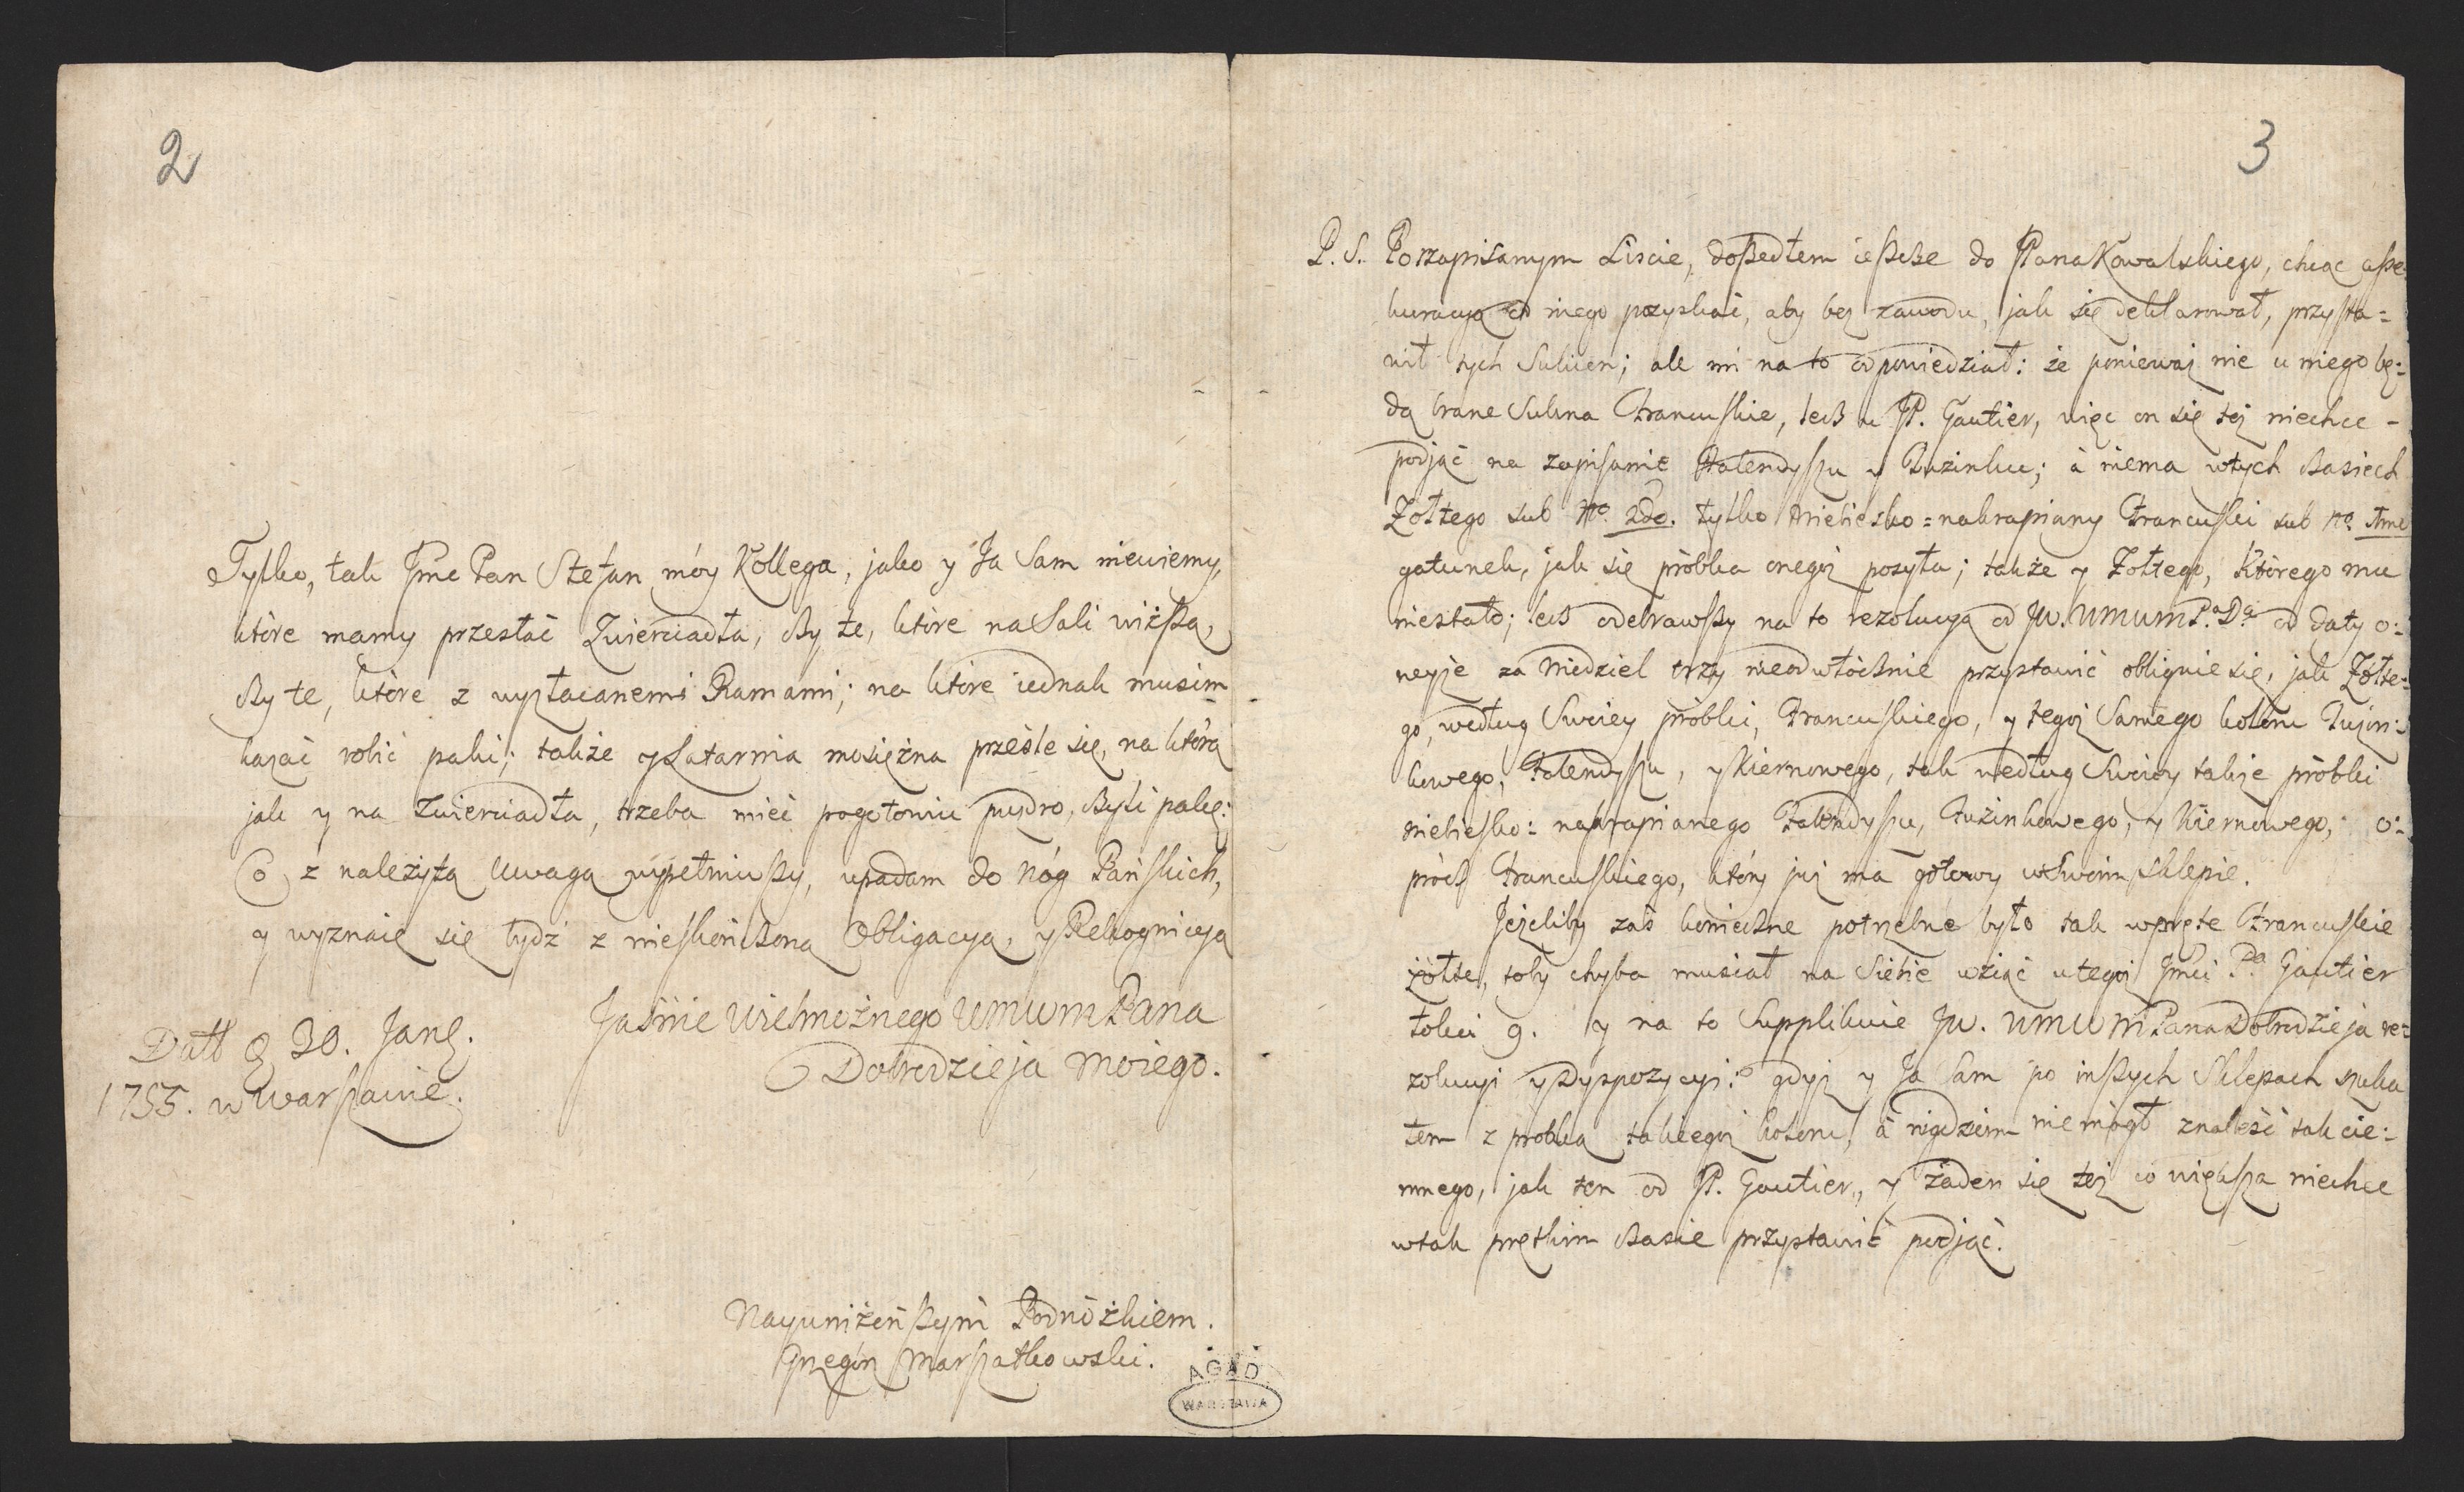 2
Tylko, tak Jmc Pan Stefan móy Kollega, jako y Ja Sam niewiemy,
które mamy przesłać Zwierciadła, czy te, które na Sali wiszą,
czy te, które z wyzłacanemi Ramami; na które iednak musim
kazać robić paki; także y Latarnia mosiężna prześle się, na którą
jak y na Zwierciadła, trzeba mieć pogotowiu pudro, czyli pakę:
Co z należytą Uwagą wypełniwszy, upadam do Nóg Pańskich,
y wyznaię się bydź z nieskończoną Obligacyą, y Rekognicyą
Jaśnie Wielmożnego WMWM Pana
Dobrodzieja Moiego.
Datt d 30. Jan.
1755. w Warszawie.
Nayuniżeńszym Podnóżkiem.
Grzegórz Marszałkowski.
AGAD
WARSZAWA
3
P. S. Po zapisanym Liscie, doszedłem ieszcze do JPana Kowalskiego, chcąc asse
kuracyą od niego pozyskać, aby bez zawodu, jak się deklarował, przysta=
wił tych Sukien; ale mi na to odpowiedział: że ponieważ nie u niego bę=
dą brane Sukna Francuskie, lecz u JP. Gautier, więc on się też niechce -
podjąć na zapisanie Falendyszu y Tuzinku; à niema w tych czasiech
Żołtego sub No. 2do. tylko Niebiesko=nakrapiany Francuski sub No. 1mo
gatunek, jak się próbka onegoż posyła; także y Żołtego, Którego mu
niestało; lecz odebrawszy na to rezolucyą od JW. WMWMP.a D.a od daty o=
neyże za Niedziel trzy nieodwłócznie przystawić obliguie się, jak Żołte=
go, według Swoiey próbki, Francuskiego, y tegoż Samego koloru Tuzin=
kowego, Falendyszu, y Kiernowego, tak według Swoiey także próbki
niebiesko= nakrapianego Falendyszu, Tuzinkowego, y Kiernowego, o=
prócz Francuskiego, który już ma gotowy w Swoim Sklepie.
Jeżeliby zaś koniecznie potrzebne było tak wprętce Francuskie
żółte, toby chyba musiał na Siebie wziąć u tegoż Jmci P.a Gautier
łokci 9. y na to Supplikuie JW. WMWM Pana Dobrodzieja re=
zolucyi y Dyspozycyi: gdyż y Ja Sam po inszych Sklepach szuka
łem z próbką takiegoż koloru, à nigdziem nie mógł znaleść tak cie=
mnego, jak ten od JP. Gautier, y żaden się też co większa niechce
w tak prętkim czasie przystawić podjąć.